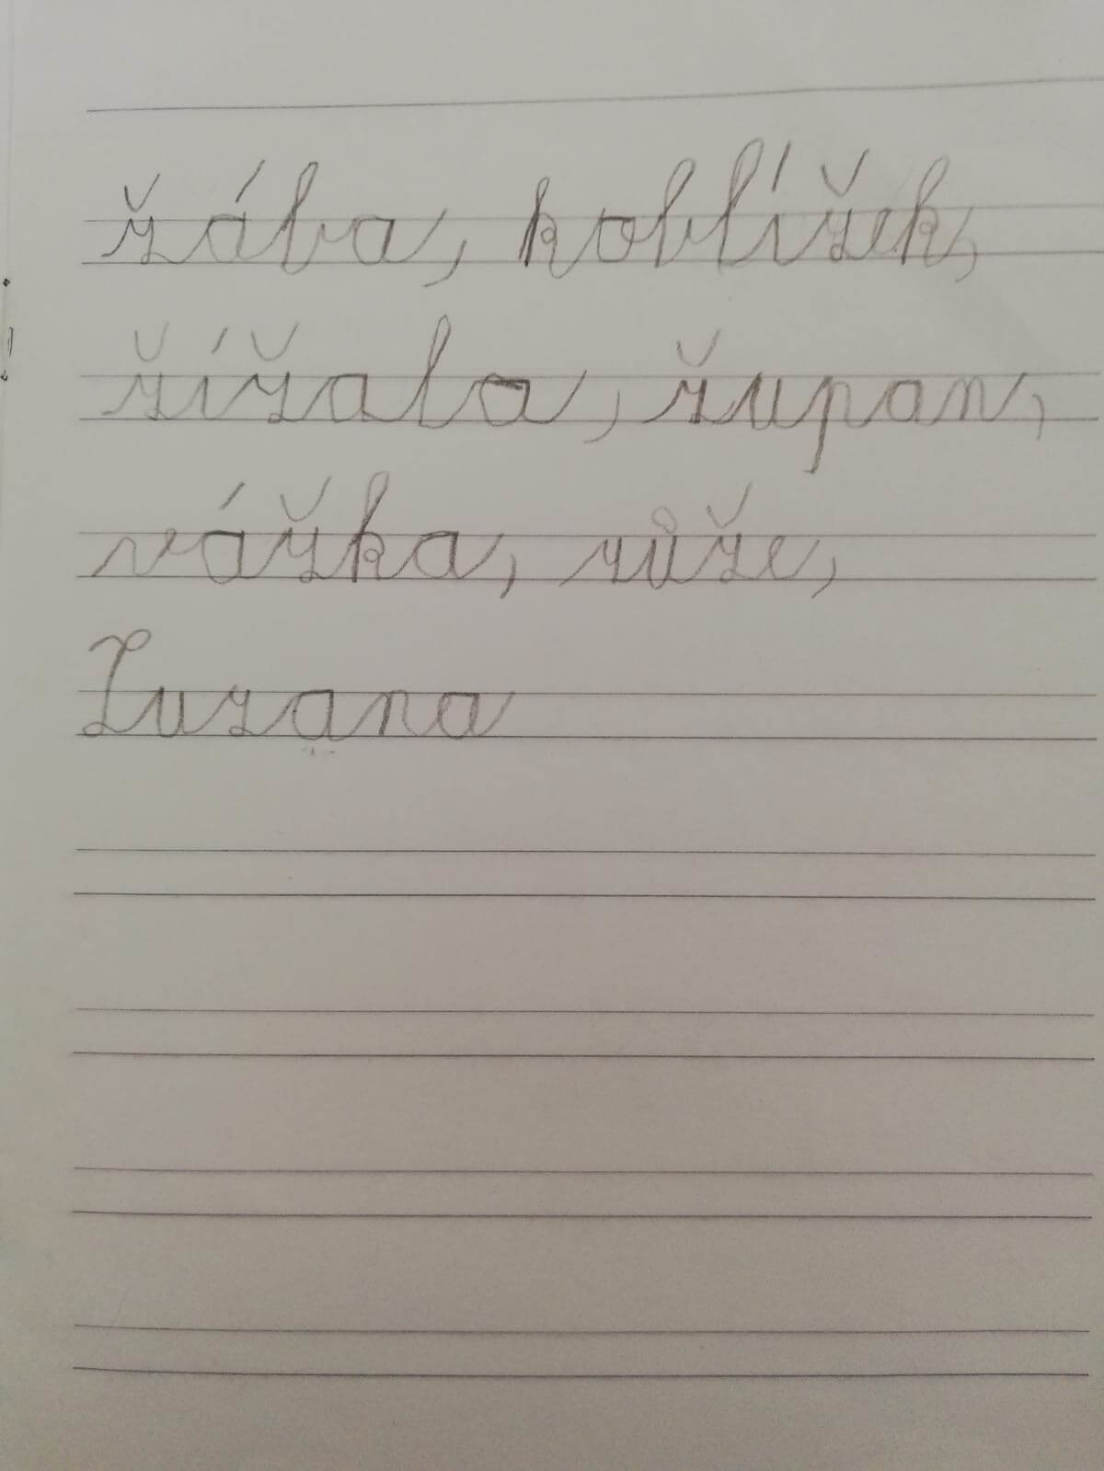 žába, koblížek,
žížala, župan,
vážka, růže,
Zuzana